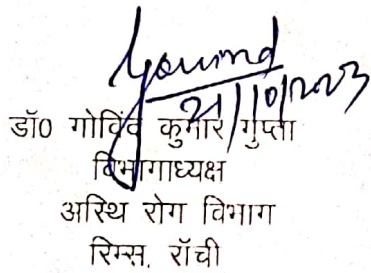 Govind
21/10/2023
डॉ0 गोविंद कुमार गुप्ता
विभागाध्यक्ष
अस्थि रोग विभाग
रिम्स, राँची